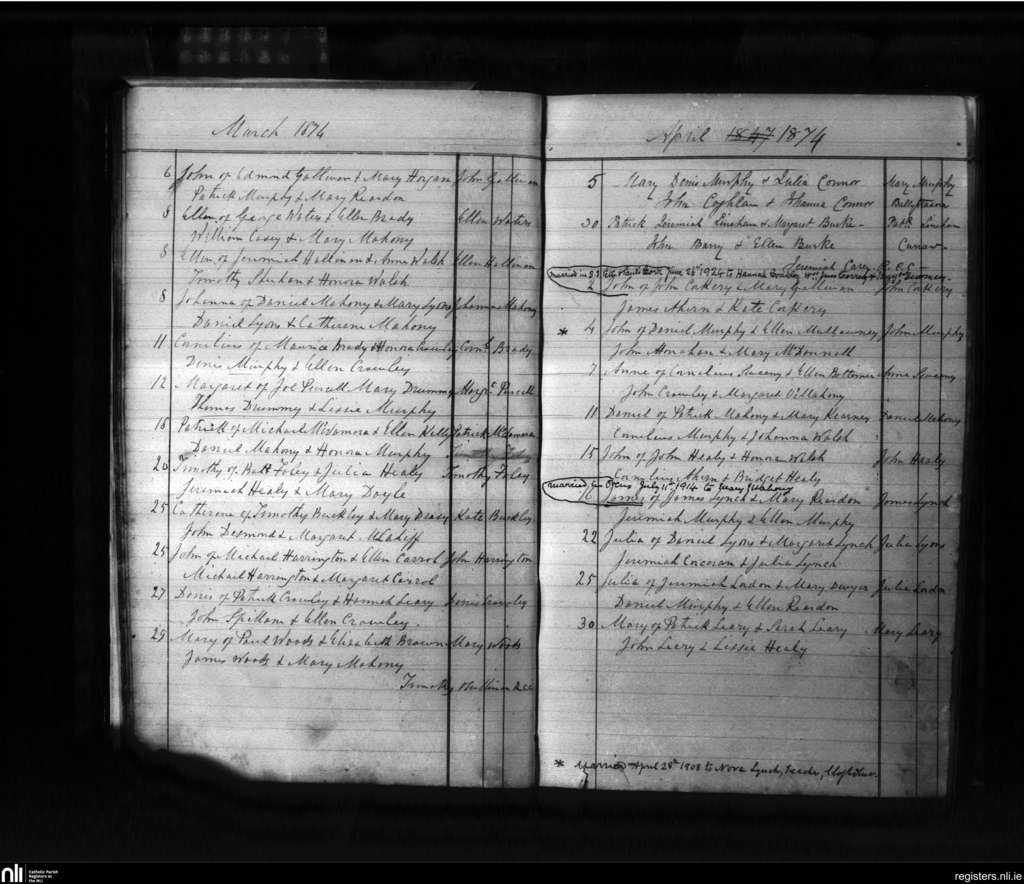 March 1874
6 John of Edmond Gallivan & Mary Horgan John Gallivan
Patrick Murphy & Mary Reardon
8 Ellen of George Waters & Ellen Brady Ellen Waters
William Casey & Mary Mahony
8 Ellen of Jeremiah Hallinan & Anne Walsh Ellen Hallinan
Timothy & Honora Walsh
8 Johanna of Daniel Mahony & Mary Lyons Johanna Mahony
Daniel Lyons & Catherine Mahony
11 Cornelius of Maurice Brady & Honora Crowley Corns Brady
Denis Murphy & Ellen Crowley
12 Margaret of Joe Purcell Mary Drummy Margt Purcell
Thomas Drummy & Lissie Murphy
18 Patrick of Michael McNamara & Ellen Kelly Patrick McNamara
Daniel Mahony & Honora Murphy
20 Timothy of Batt Foley & Julia Healy Timothy Foley
Jeremiah Healy & Mary Doyle
25 Catherine of Timothy Buckley & Mary Kate Buckley
John Desmond & Margaret
25 John of Michael Harrington & Ellen Carrol John Harrington
Michael Harrington & Margaret Carrol
27 Denis of Patrick Crowley & Hannah Leary Denis Crowley
John Spillane & Ellen Crowley
29 Mary of Paul Woods & Elizabeth Brown Mary Woods
James Woods & Mary Mahony
Timothy
April 1847 1874
5 Mary Denis Murphy & Julia Connor Mary Murphy
John Coghlan & Johanna Connor
30 Patrick Jeremiah Lineham & Margaret Burke - Patk Lineham
John Barry & Ellen Burke
Jeremiah Carey
Married in June 28th 1924 to Hannah
2 John of John Corkery & Mary Gallivan John Corkery
James Ahern & Kate Corkery
* 4 John of Daniel Murphy & Ellen John Murphy
John Honahan & Mary McDonnell
7 Anne of Cornelius Sweeny & Ellen Anne Sweeny
John Crowley & Margaret O'Mahony
11 Daniel of Patrick Mahony & Mary Kearney Daniel Mahony
Cornelius Murphy & Johanna Walsh
15 John of John Healy & Honora Walsh John Healy
Cornelius Ahern & Bridget Healy
Married in Ovens July 11th 1914 to Mary
16 James of James Lynch & Mary Reardon James Lynch
Jeremiah Murphy & Ellen Murphy
22 Julia of Daniel Lyons & Margaret Lynch Julia Lyons
Jeremiah Corcoran & Julia Lynch
25 Julia of Jeremiah & Mary Dwyer Julia
Daniel Murphy & Ellen Reardon
30 Mary of Patrick Leary & Sarah Leary Mary Leary
John Leary & Lissie Healy
* Married April 28th 1908 to Nora Lynch,
nli Catholic Parish
Registers at
the NLI
registers.nli.ie